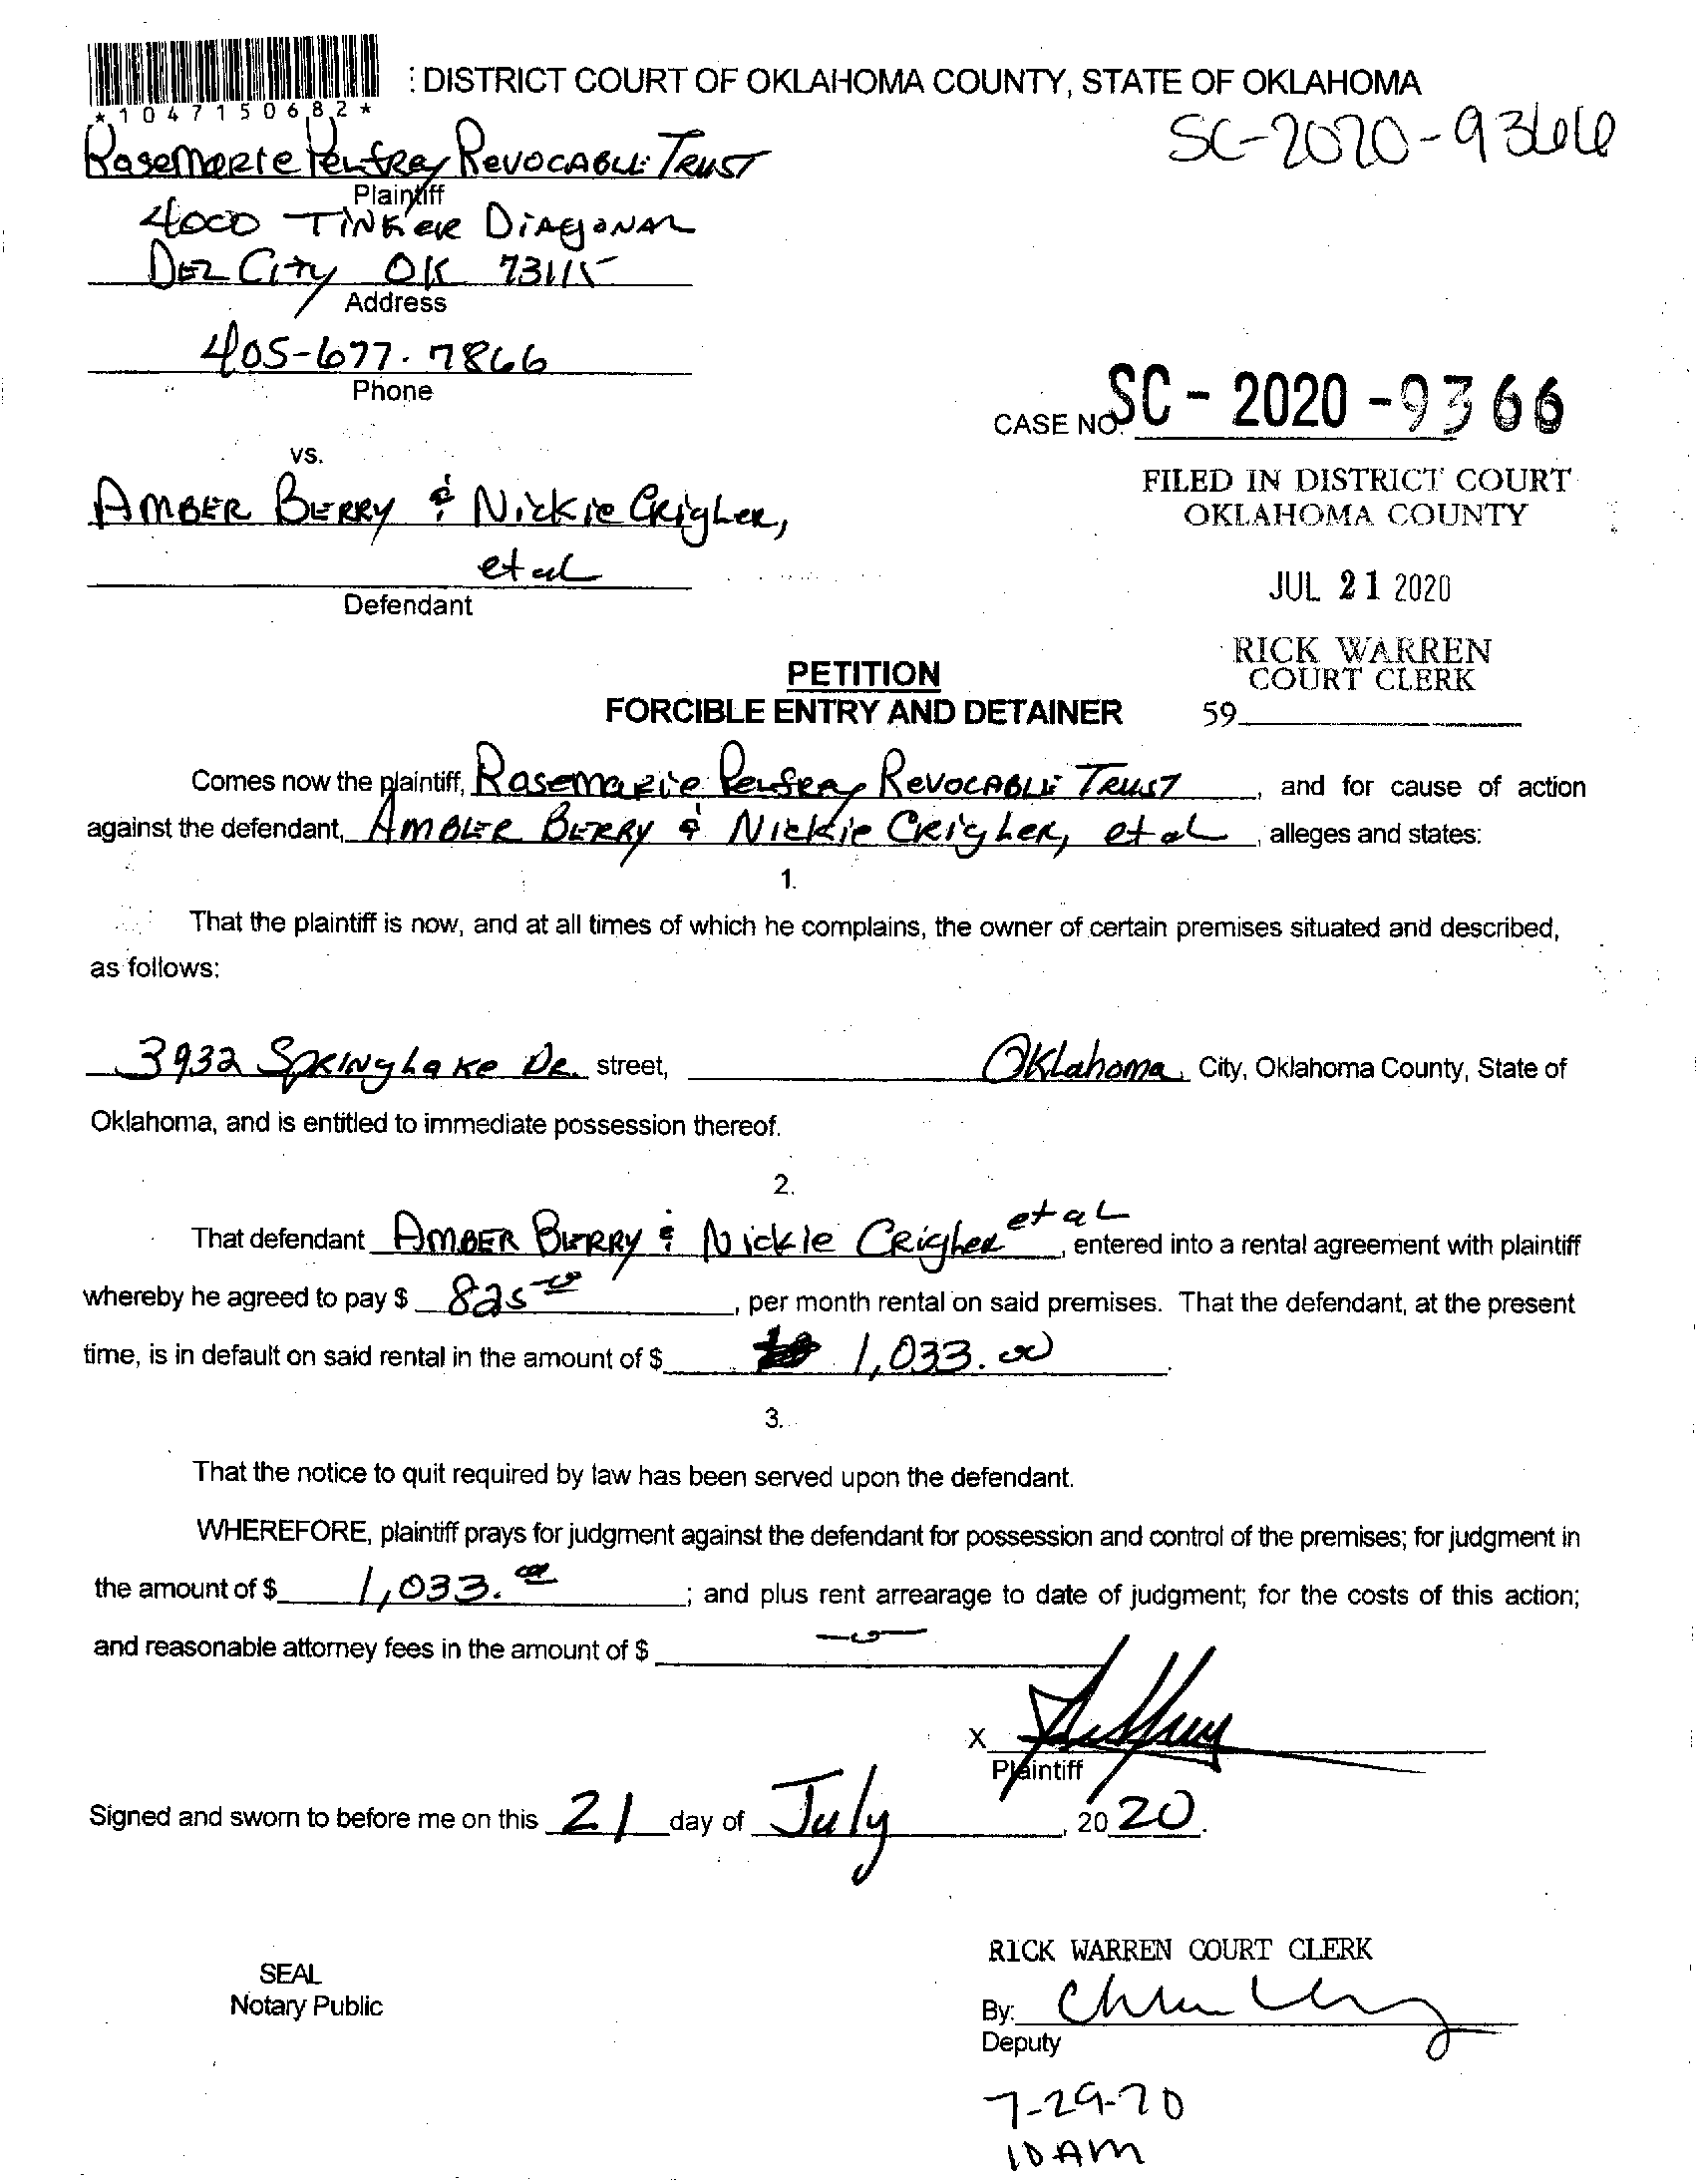 : DISTRICT COURT OF OKLAHOMA COUNTY, STATE OF OKLAHOMA
*1047150682*
SC-2020-9366
Rosemarie Penfray REVOCABLE TRUST
Plaintiff
4000 TINKER DIAGONAL
DEL CITY OK 73115
Address
405-677-7866
Phone
CASE NO. SC - 2020 - 9366
vs.
FILED IN DISTRICT COURT
OKLAHOMA COUNTY
AMBER BERRY & Nickie Crigler,
et al
JUL 21 2020
Defendant
RICK WARREN
COURT CLERK
59
PETITION
FORCIBLE ENTRY AND DETAINER
Comes now the plaintiff, Rosemarie Penfray REVOCABLE TRUST, and for cause of action
against the defendant, AMBER BERRY & Nickie Crigler, et al, alleges and states:
1.
That the plaintiff is now, and at all times of which he complains, the owner of certain premises situated and described,
as follows:
3932 Springlake Dr. street, Oklahoma City, Oklahoma County, State of
Oklahoma, and is entitled to immediate possession thereof.
2.
That defendant AMBER BERRY & Nickie Crigler et al, entered into a rental agreement with plaintiff
whereby he agreed to pay $ 825.00, per month rental on said premises. That the defendant, at the present
time, is in default on said rental in the amount of $ 1,033.00.
3.
That the notice to quit required by law has been served upon the defendant.
WHEREFORE, plaintiff prays for judgment against the defendant for possession and control of the premises; for judgment in
the amount of $ 1,033.00; and plus rent arrearage to date of judgment; for the costs of this action;
and reasonable attorney fees in the amount of $ -0-
X
Plaintiff
Signed and sworn to before me on this 21 day of July, 2020.
RICK WARREN COURT CLERK
SEAL
Notary Public
By:
Deputy
7-29-20
10 AM